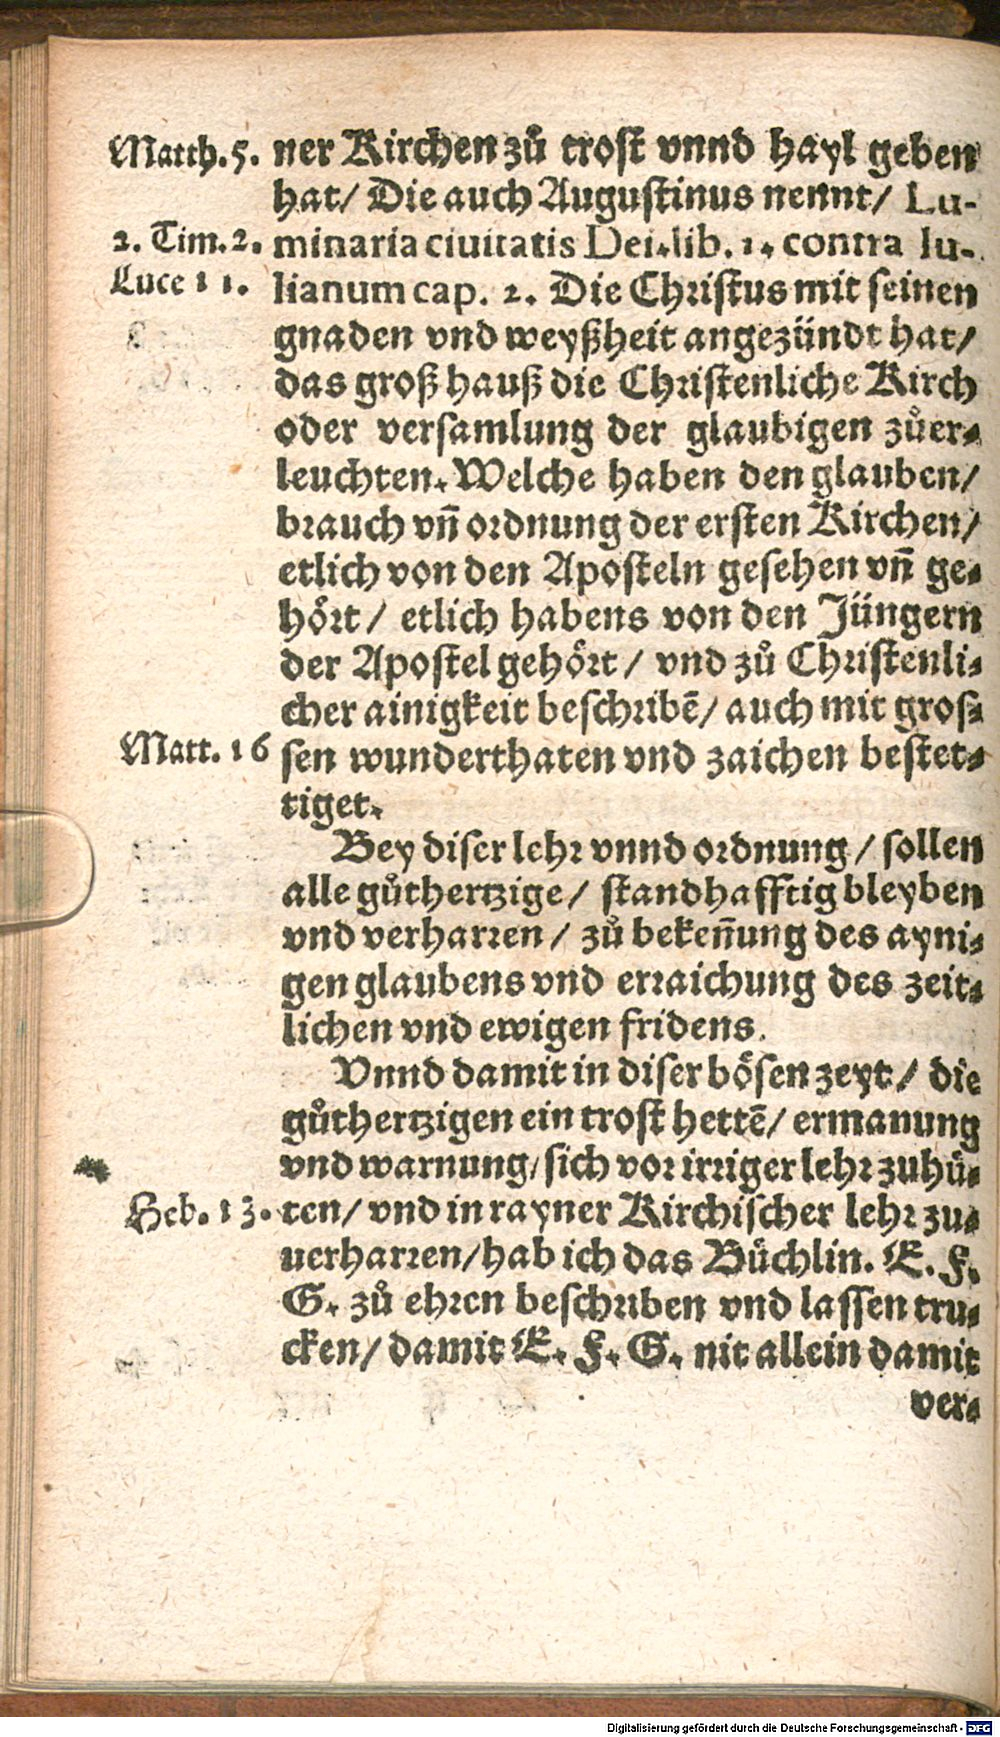 Matth. 5. ner Kirchen zů trost vnnd hayl geben
hat/ Die auch Augustinus nennt/ Lu-
2. Tim. 2. minaria ciuitatis Dei. lib. 1. contra Iu-
Luce 11. lianum cap. 2. Die Christus mit seinen
gnaden vnd weyßheit angezündt hat/
das groß hauß die Christenliche Kirch
oder versamlung der glaubigen zůer-
leuchten. Welche haben den glauben/
brauch vñ ordnung der ersten Kirchen/
etlich von den Aposteln gesehen vñ ge-
hört/ etlich habens von den Jüngern
der Apostel gehört/ vnd zů Christenli-
cher ainigkeit beschribē/ auch mit gros-
Matt. 16 sen wunderthaten vnd zaichen bestet-
tiget.
Bey diser lehr vnnd ordnung/ sollen
alle gůthertzige/ standhafftig bleyben
vnd verharren/ zů bekeñung des ayni-
gen glaubens vnd erraichung des zeit-
lichen vnd ewigen fridens.
Vnnd damit in diser bösen zeyt/ die
gůthertzigen ein trost hettē/ ermanung
vnd warnung/ sich vor irriger lehr zuhü-
Heb. 13. ten/ vnd in rayner Kirchischer lehr zu-
uerharren/ hab ich das Büchlin. E. F.
G. zů ehren beschriben vnd lassen tru-
cken/ damit E. F. G. nit allein damit
ver-
Digitalisierung gefördert durch die Deutsche Forschungsgemeinschaft - DFG